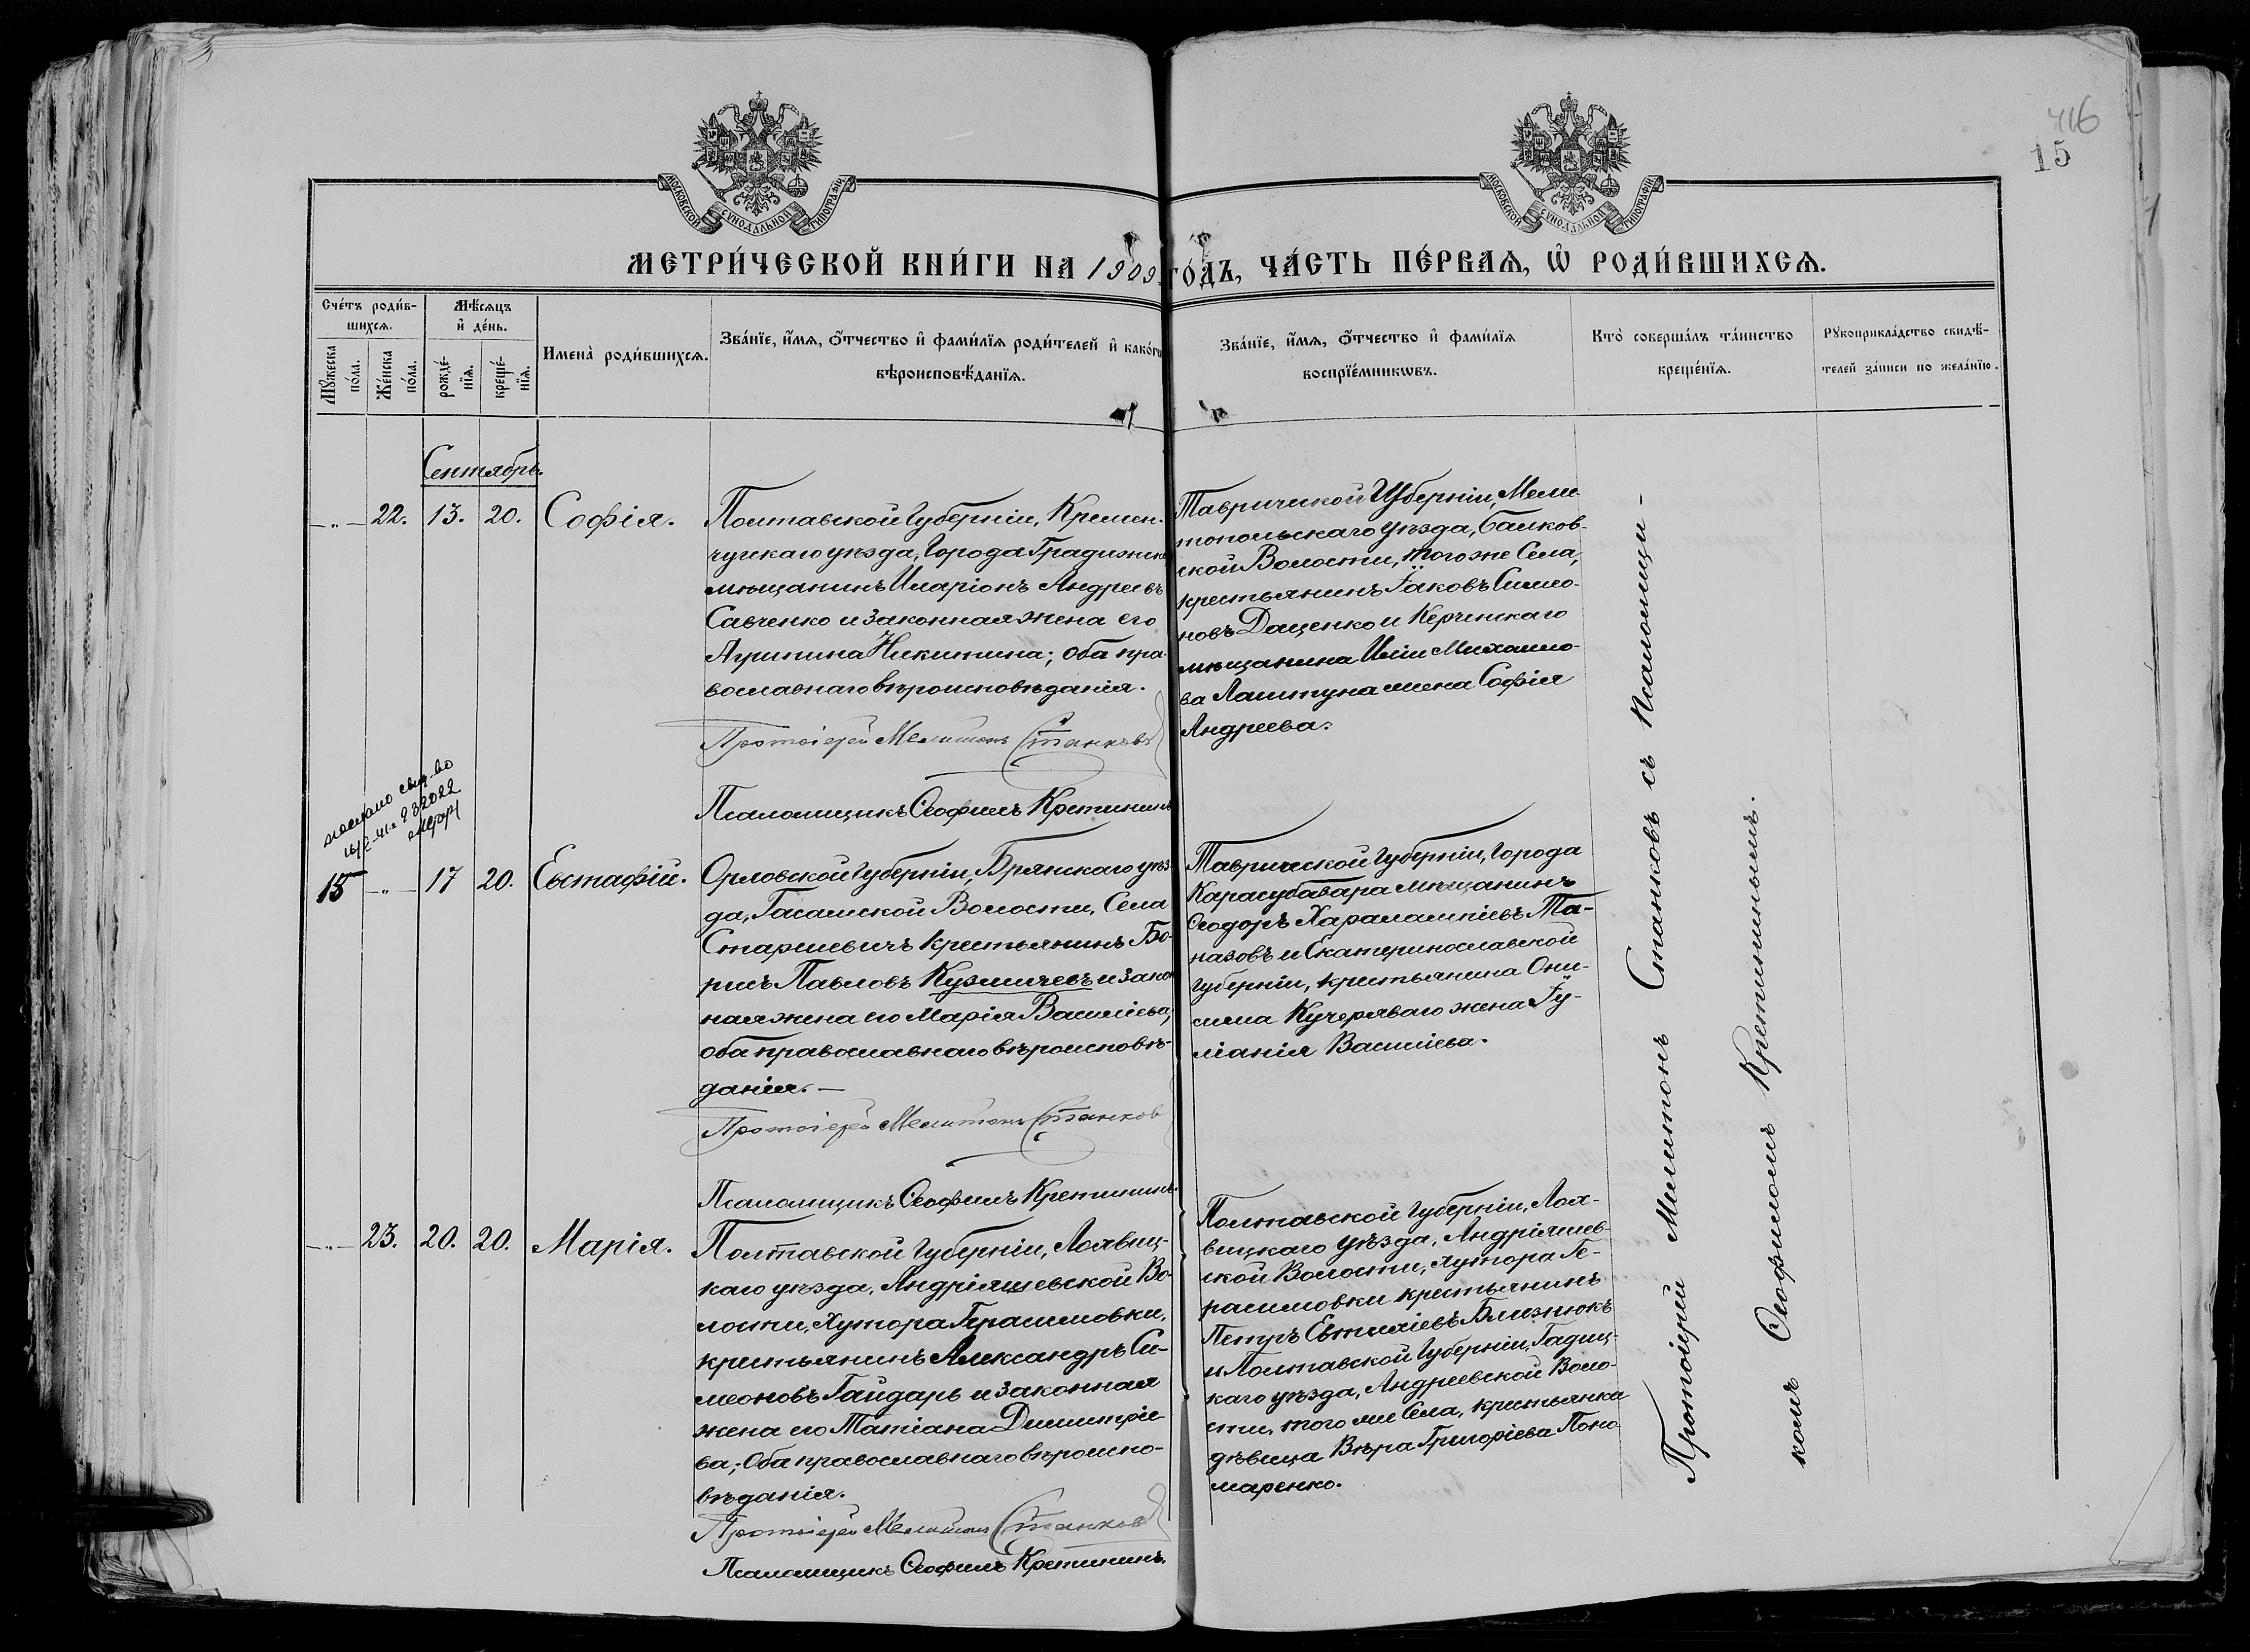 416
15
МОСКОВСКОЙ СѴНОДАЛЬНОЙ ТИПОГРАФІИ
МОСКОВСКОЙ СѴНОДАЛЬНОЙ ТИПОГРАФІИ
МЕТРИ́ЧЕСКОЙ КНИ́ГИ НА 1909 ГО́ДЪ, ЧА́СТЬ ПЕ́РВАѦ, Ѡ҆ РОДИ́ВШИХСѦ.
Сче́тъ роди́в-
шихсѧ.
Мꙋ́жеска
по́ла.
Же́нска
по́ла.
Мѣ́сѧцъ
и҆ де́нь.
рожде́-
нїѧ.
креще́-
нїѧ.
Имена̀ роди́вшихсѧ.
Зва́нїе, и҆́мѧ, ѻ҆́тчество и҆ фами́лїѧ роди́телей и҆ како́гѡ
вѣроисповѣ́данїѧ.
Зва́нїе, и҆́мѧ, ѻ҆́тчество и҆ фами́лїѧ
воспрїе́мникѡвъ.
Кто̀ соверша́лъ та́инство
креще́нїѧ.
Рꙋкоприкла́дство свидѣ́-
телей за́писи по жела́нїю.
Сентябрь.
—„— 22. 13. 20. Софія.
Полтавской Губерніи, Кремен-
чугскаго уѣзда, Города Градижска
мѣщанинъ Иларіонъ Андреевъ
Савченко и законная жена его
Агрипина Никитина; оба пра-
вославнаго вѣроисповѣданія.
Протоіерей Мелитонъ Станковъ
Псаломщикъ Ѳеофилъ Кретининъ
Таврической Губерніи, Мели-
топольскаго Уѣзда, Балков-
ской Волости, того же Села,
крестьянинъ Іаковъ Симео-
новъ Даценко и Керченскаго
мѣщанина Иліи Михаило-
ва Лаштуна жена Софія
Андреева.
послано свид-во
15 —„— 17 20. Евстафій.
Орловской Губерніи, Брянскаго уѣз-
да, Салынской Волости, Села
Старшевичъ крестьянинъ Бо-
рисъ Павловъ Кузмичевъ и закон
ная жена его Марія Василіева,
оба православнаго вѣроисповѣ-
данія.—
Протоіерей Мелитонъ Станков
Псаломщикъ Ѳеофилъ Кретининъ.
Таврической Губерніи, Города
Карасубазара мѣщанинъ
Ѳеодоръ Харалампіевъ Та-
назовъ и Екатеринославской
Губерніи, крестьянина Они-
сима Кучеряваго жена Іу-
ліанія Василіева.
—„— 23. 20. 20. Марія.
Полтавской Губерніи, Лохвиц-
каго уѣзда, Андріяшевской Во-
лости, Хутора Герасимовки,
крестьянинъ Александръ Си-
меоновъ Гайдарь и законная
жена его Татіана Димитріе-
ва; Оба православнаго вѣроиспо-
вѣданія.
Протоіерей Мелитонъ Станковъ
Псаломщикъ Ѳеофилъ Кретининъ.
Полтавской Губерніи, Лох-
вицкаго Уѣзда, Андріяшев-
ской Волости, Хутора Ге-
расимовки крестьянинъ
Петръ Евтихіевъ Близнюкъ
и Полтавской Губерніи, Гадяц-
каго уѣзда, Андреевской Воло-
сти, того же Села, крестьянка
дѣвица Вѣра Григоріева Поно-
маренко.
Протоіерей Мелитонъ Станковъ съ Псаломщи-
комъ Ѳеофиломъ Кретининымъ.